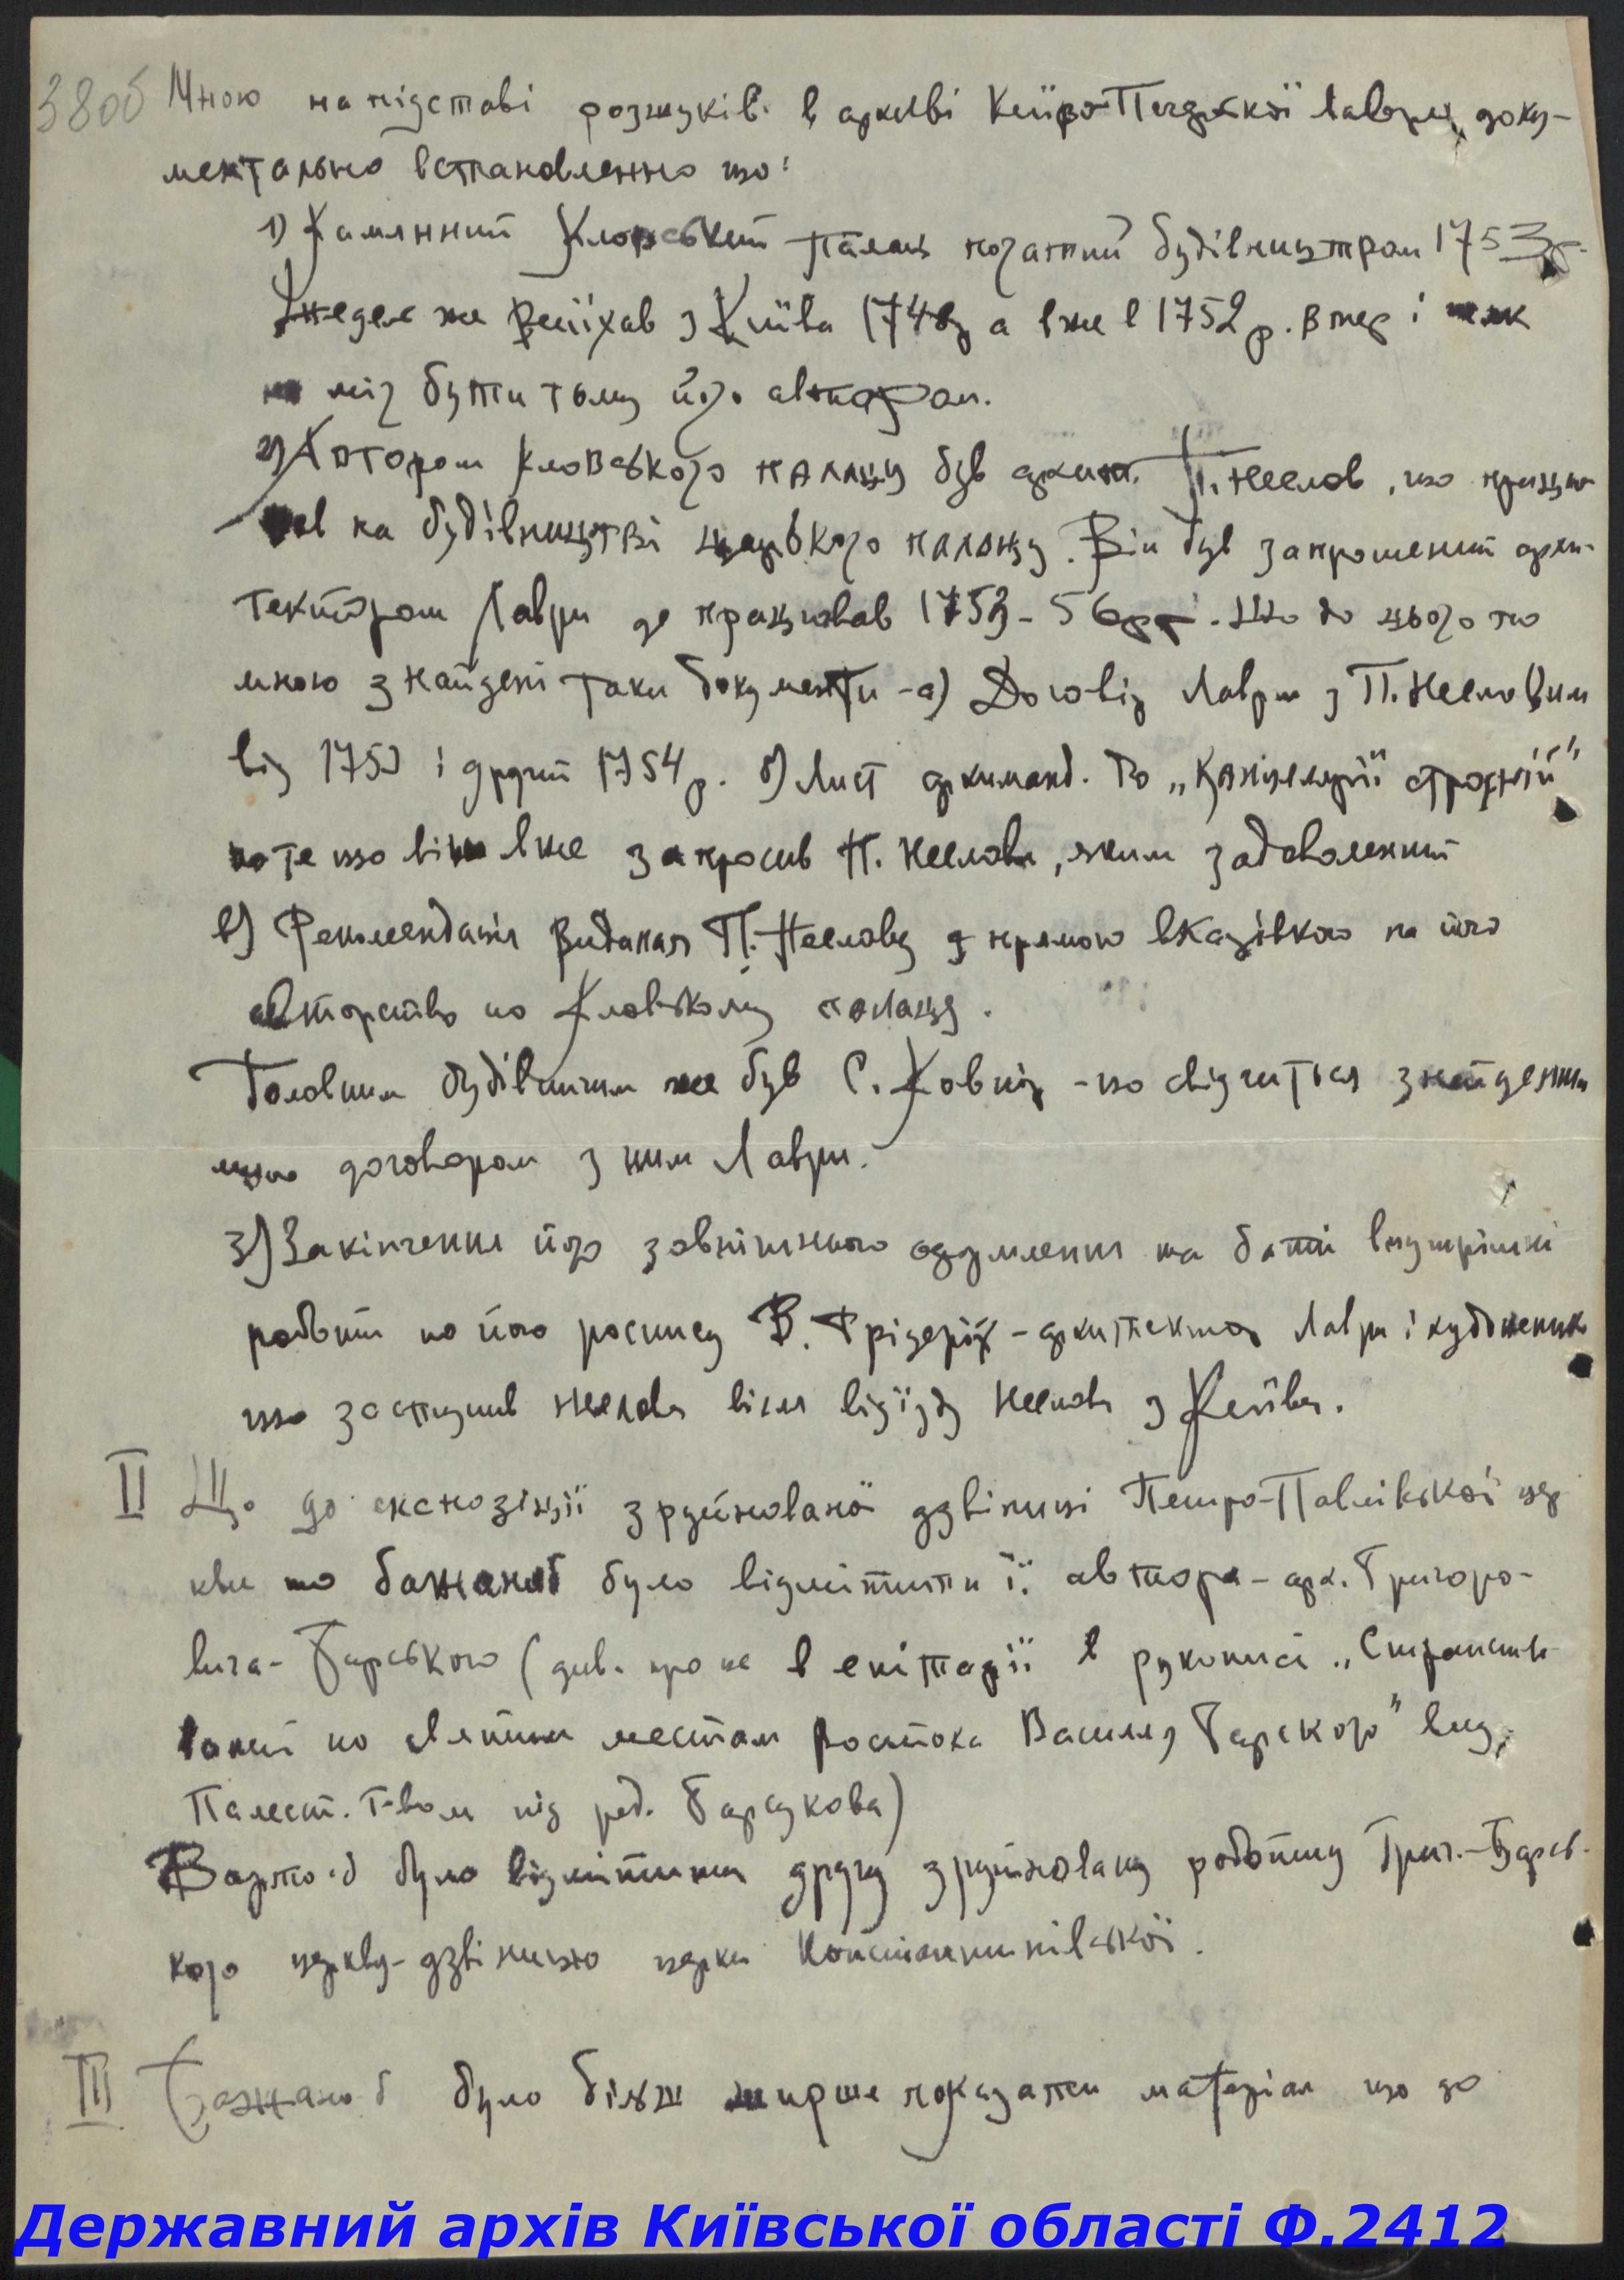 38об Мною на підставі розшуків в архиві Київо-Печерської Лаври доку-
ментально встановленно що:
1) Камянний Кловський палац початий будівництвом 1753 р.
Шедель же виїхав з Київа 1748 а вже в 1752 р. вмер і так
не міг бути тому його автором.
2) Автором Кловського палацу був архит. П. Неелов, що працю-
вав на будівництві царького палацу. Він був запрошений архи-
тектором Лаври де працював 1753-56 рр. Що до цього то
мною знайдені таки документи - а) Договір Лаври з П. Нееловим
від 1753 і другий 1754 р. б) Лист архиманд. до „Канцелярії строєній"
про те що він вже запросив П. Неелова, яким задоволенний
в) Рекомендація видання П. Неелову з прямою вказівкою на його
авторство по Кловському палацу.
Головним будівничим же був С. Ковнір - що свідчиться знайденим
мною договором з ним Лаври.
3) Закінчення його зовнішнього оформлення та багні внутрішні
роботи по його роспису В. Фрідеріх - архитектор Лаври і художник
що заступив Неелова після відїзду Неелова з Київа.
II Що до експозіції зруйнованої дзвіниці Петро-Павлівської цер
кви то бажано б було відмітити її автора - арх. Григоро-
вича-Барського (див. про це в епітафії в рукописі „Странство-
ваний по святим местам Востока Василия Барского" вид.
Палест. Т-вом під ред. Барсукова)
Варто б було відмітити другу зруйновану роботу Григ.-Барсь-
кого церкву-дзвіницю церкви Константинівської.
III Бажано б було більш ширше показати матеріал що до
Державний архів Київської області Ф.2412